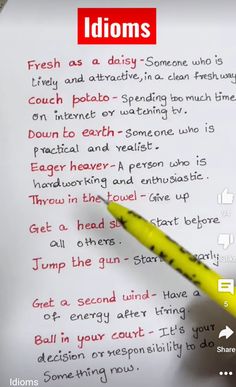 Idioms
Fresh as a daisy - Someone who is
lively and attractive, in a clean fresh way
Couch potato - Spending too much time
on internet or watching tv.
Down to earth - Someone who is
practical and realist.
Eager heaver - A person who is
hardworking and enthusiastic.
Throw in the towel - Give up
Get a head Start before
all others.
Jump the gun -
Get a second wind - Have a
of energy after tiring.
Ball in your court - It's your
decision or responsibility to do
Something now.
5
Share
Idioms